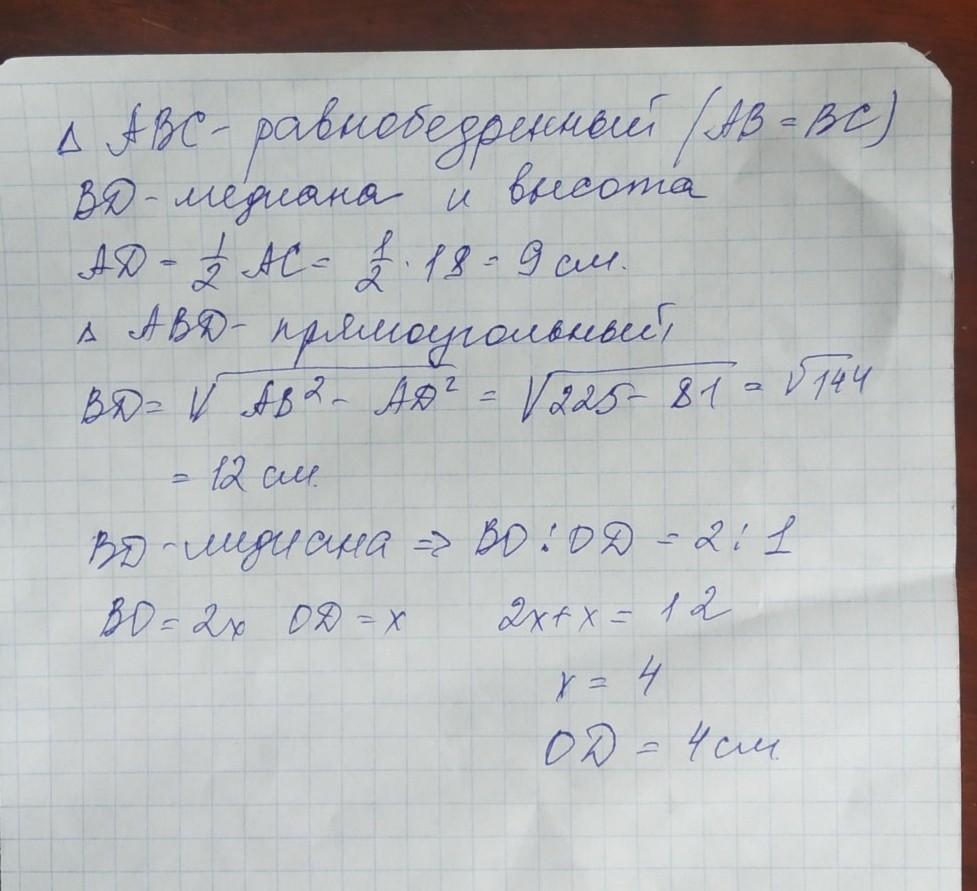 Δ ABC - равнобедренный (AB = BC)
BD - медиана и высота
AD = 1/2 AC = 1/2 · 18 = 9 см.
Δ ABD - прямоугольный,
BD = √AB² - AD² = √225 - 81 = √144
= 12 см.
BD - медиана => BO : OD = 2 : 1
BO = 2x OD = x 2x + x = 12
x = 4
OD = 4 см